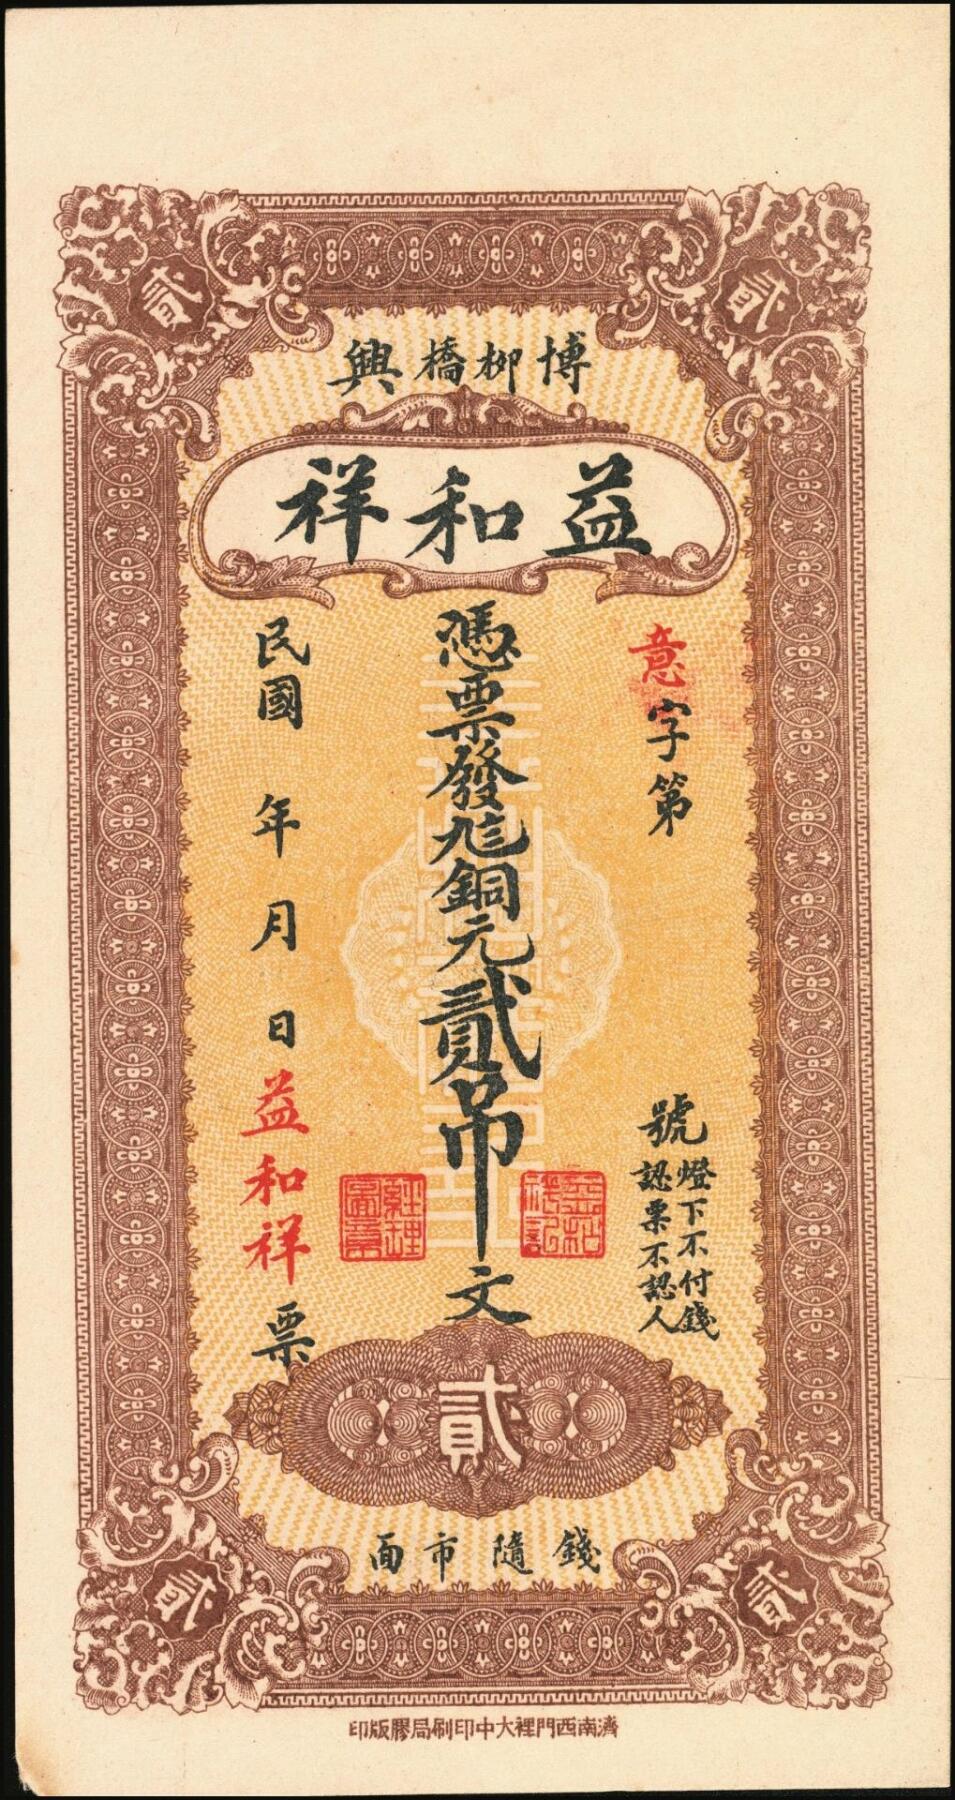 貳
貳
博柳橋興
益和祥
意字第 號
燈下不付錢
認票不認人
憑票發九三銅元貳吊文
經理圖章
民國 年 月 日 益和祥票
貳
錢隨市面
貳
貳
濟南西門裡大中印刷局膠版印